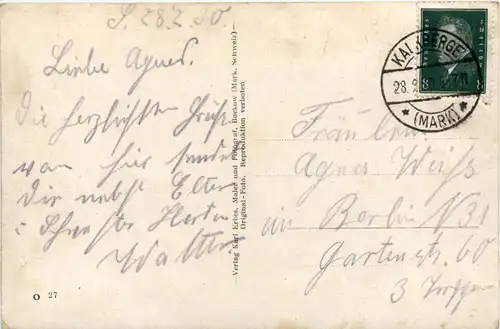 S. 28.2.30.
Liebe Agnes.
die herzlichsten Grüße
von hier sendet
Dir nebst Eltern
u. Schwester
Walter
O 27
Verlag Karl Erien, Maler und Fotograf, Buckow (Mark. Schweiz)
Original-Foto. Reproduktion verboten.
KALKBERGE
28.
(MARK)
8
8
Fräulein
Agnes Weiß
in Berlin N 31
Gartenstr. 60
3 Treppen